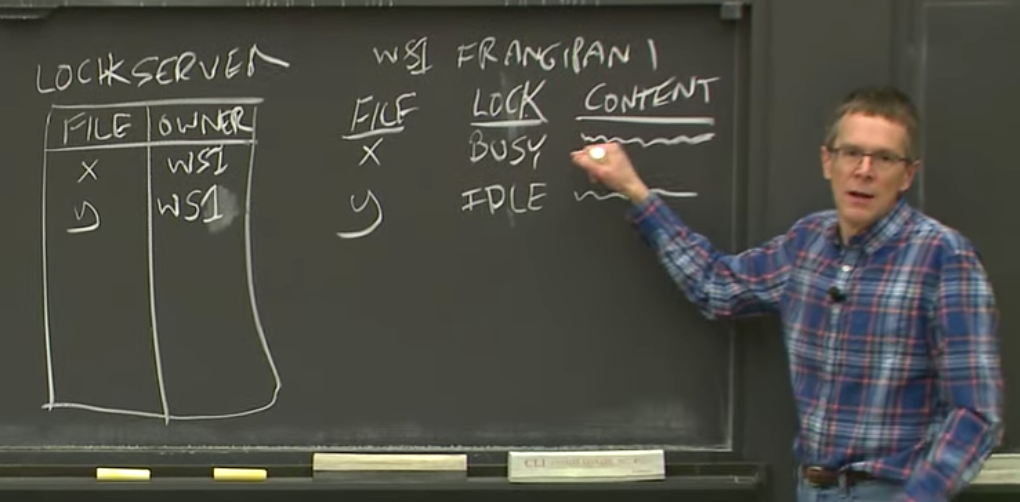 LOCK SERVER
FILE OWNER
X WS1
y WS1
WS1 FRANGIPANI
FILE LOCK CONTENT
X BUSY
y IDLE
CLI